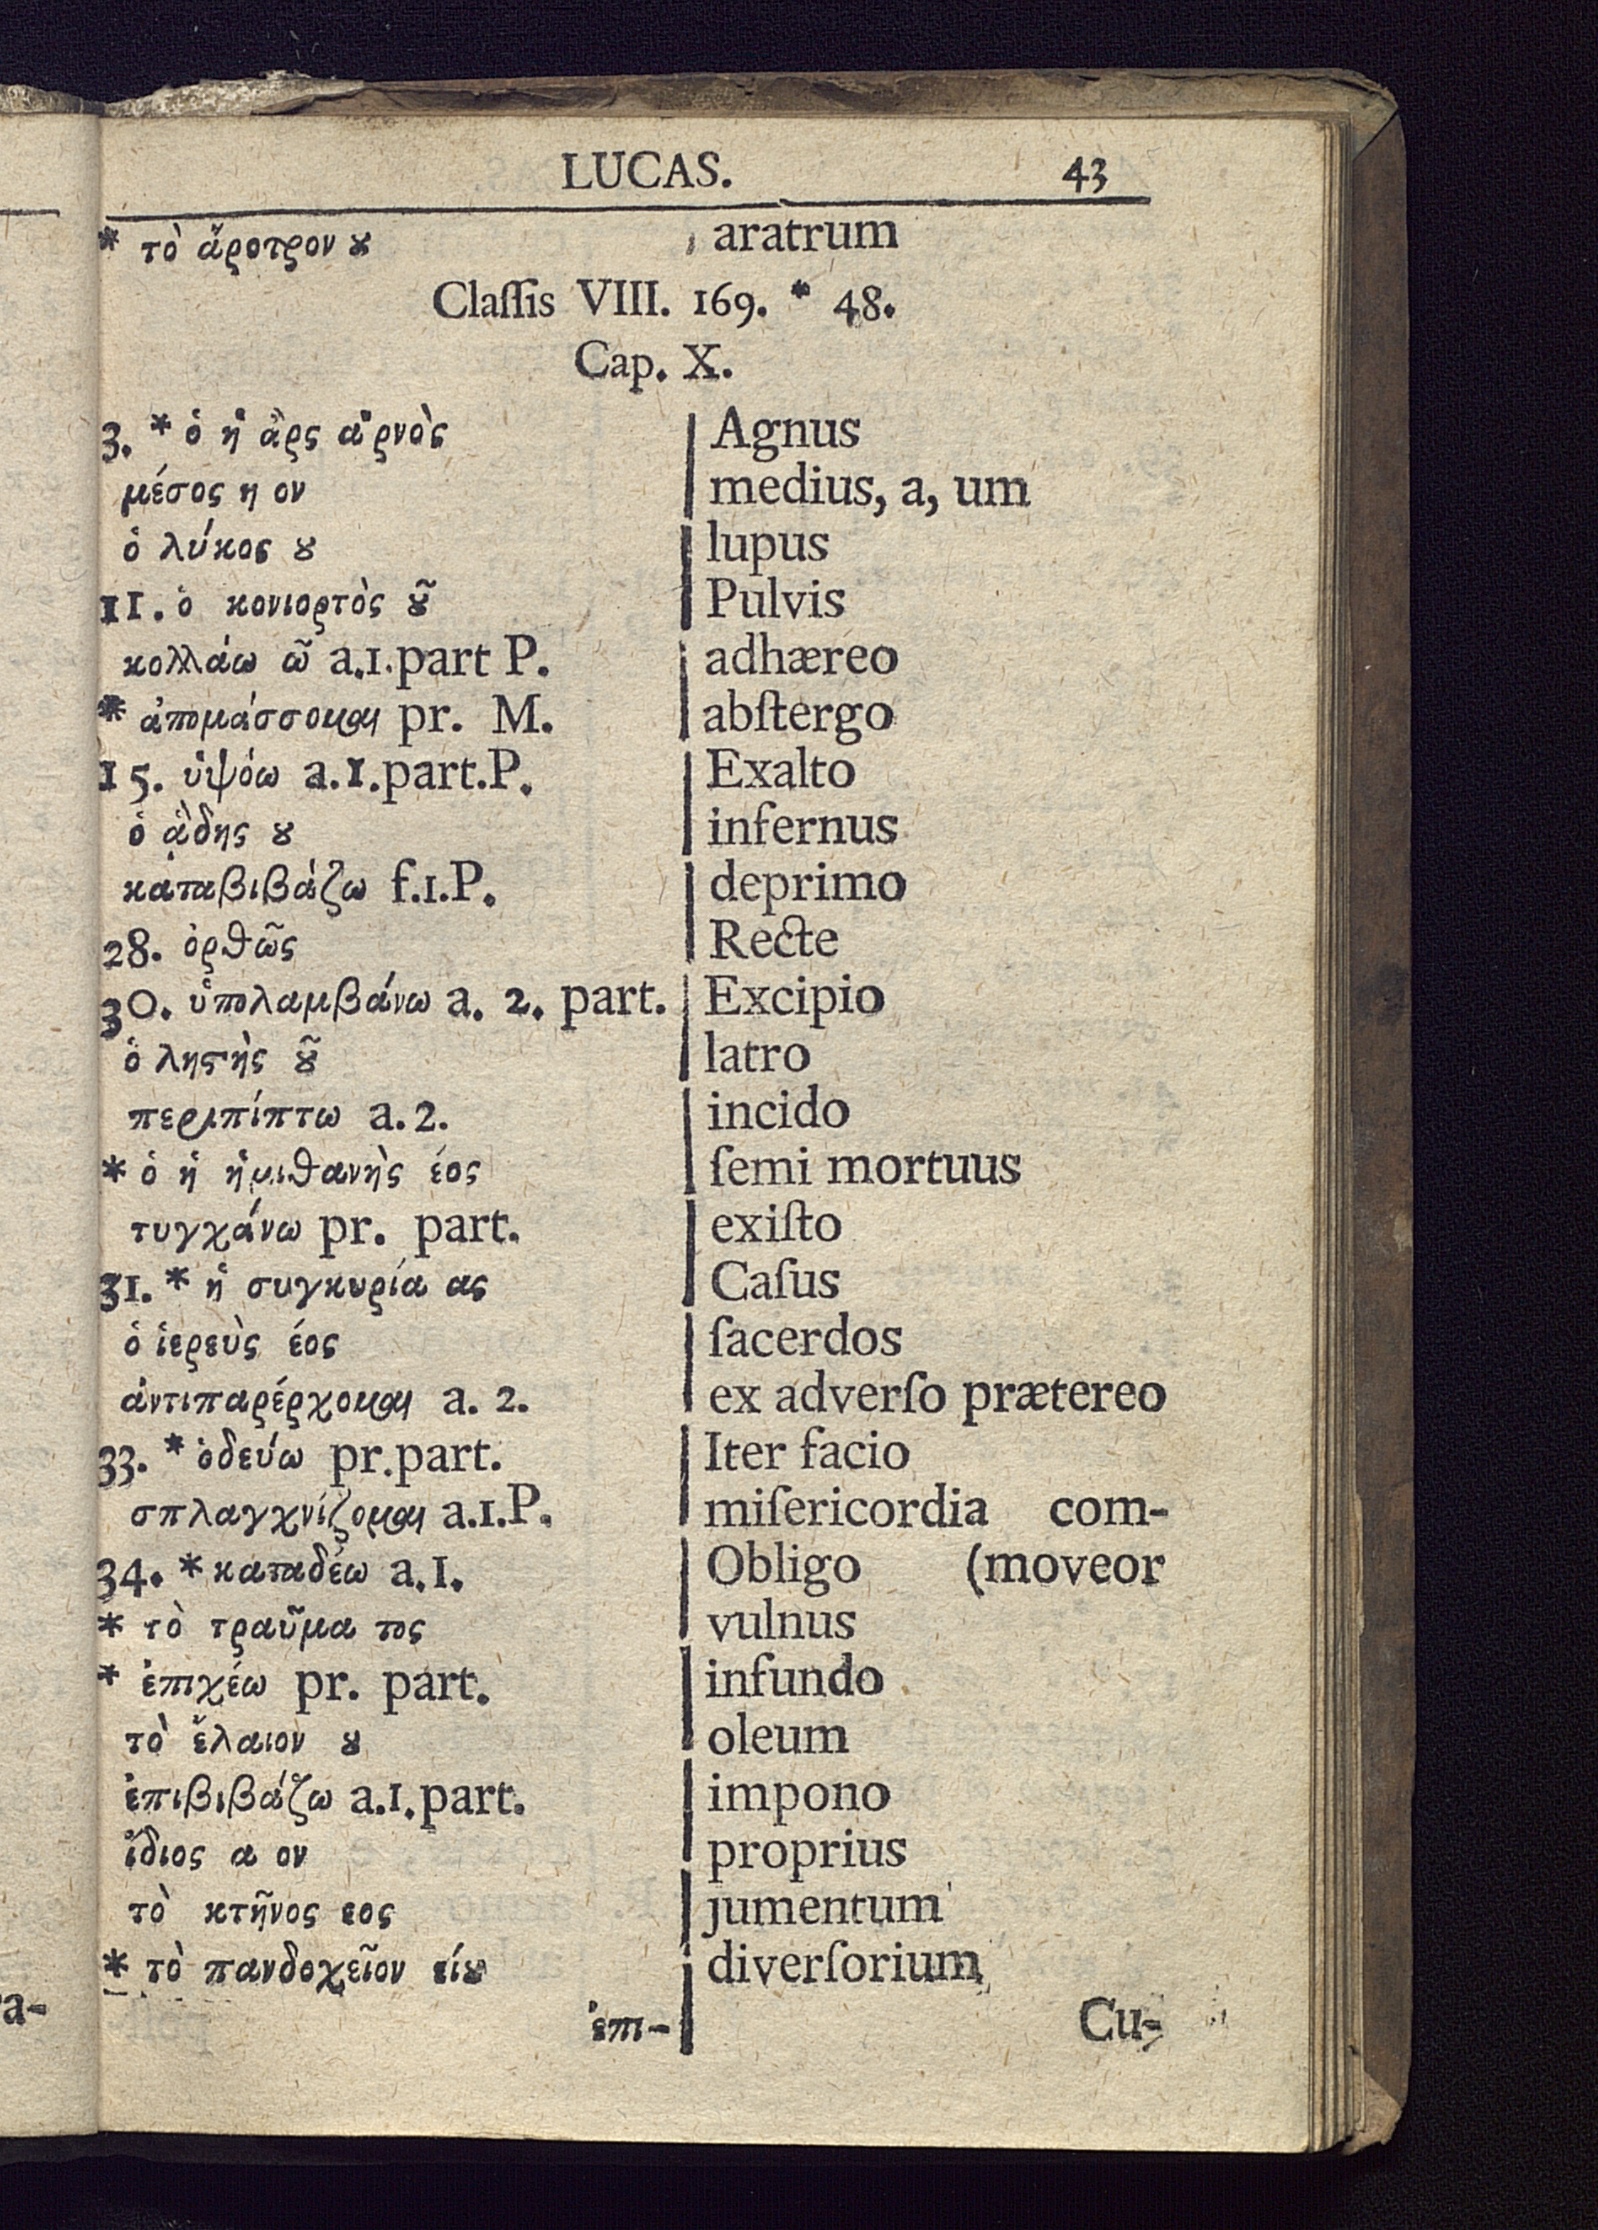 LUCAS. 43
* τὸ ἄροτρον ȣ aratrum
Claſſis VIII. 169. * 48.
Cap. X.
3. * ὁ ἡ ἂρς ἀρνὸς Agnus
μέσος η ον medius, a, um
ὁ λύκος ȣ lupus
11. ὁ κονιορτὸς ȣ͂ Pulvis
κολλάω ῶ a.1.part P. adhæreo
* ἀπομάσσομαι pr. M. abſtergo
15. ὑψόω a.1.part.P. Exalto
ὁ ᾅδης ȣ infernus
καταβιβάζω f.1.P. deprimo
28. ὀρθῶς Recte
30. ὑπολαμβάνω a. 2. part. Excipio
ὁ ληϛὴς ȣ͂ latro
περιπίπτω a.2. incido
* ὁ ἡ ἡμιθανὴς έος ſemi mortuus
τυγχάνω pr. part. exiſto
31. * ἡ συγκυρία ας Caſus
ὁ ἱερεὺς έος ſacerdos
ἀντιπαρέρχομαι a. 2. ex adverſo prætereo
33. * ὁδεύω pr.part. Iter facio
σπλαγχνίζομαι a.1.P. miſericordia com-
34. * καταδέω a.1. Obligo (moveor
* τὸ τραῦμα τος vulnus
* ἐπιχέω pr. part. infundo
τὸ ἔλαιον ȣ oleum
ἐπιβιβάζω a.1.part. impono
ἴδιος α ον proprius
τὸ κτῆνος εος jumentum
* τὸ πανδοχεῖον είȣ diverſorium
ἐπι- Cu-
a-